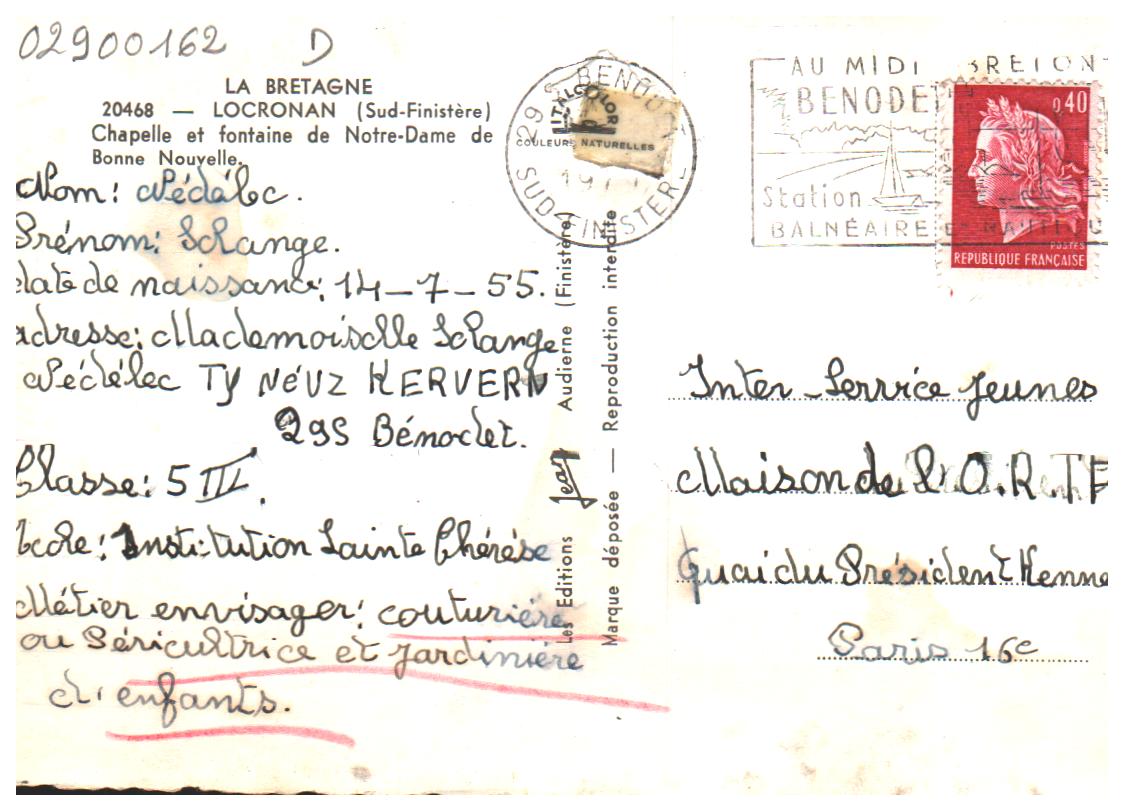 02900162 D
LA BRETAGNE
20468 — LOCRONAN (Sud-Finistère)
Chapelle et fontaine de Notre-Dame de
Bonne Nouvelle.
Nom: Pédélec.
Prénom: Solange.
date de naissance: 14-7-55.
adresse: Mademoiselle Solange
Pédélec TY NÉVZ KERVERN
29S Bénodet.
Classe: 5 III.
école: Institution Sainte Thérèse
Métier envisager: couturière
ou Péricultrice et Jardinière
d'enfants.
Les Editions Jean Audierne (Finistère)
Marque déposée — Reproduction interdite
ITALCOLOR
COULEURS NATURELLES
29 S BENODET
197
SUD-FINISTERE
AU MIDI BRETON
BENODET
Station
BALNÉAIRE
0,40
POSTES
REPUBLIQUE FRANÇAISE
Inter-Service Jeunes
Maison de l'O.R.T.F
Quai du Président Kenne
Paris 16e